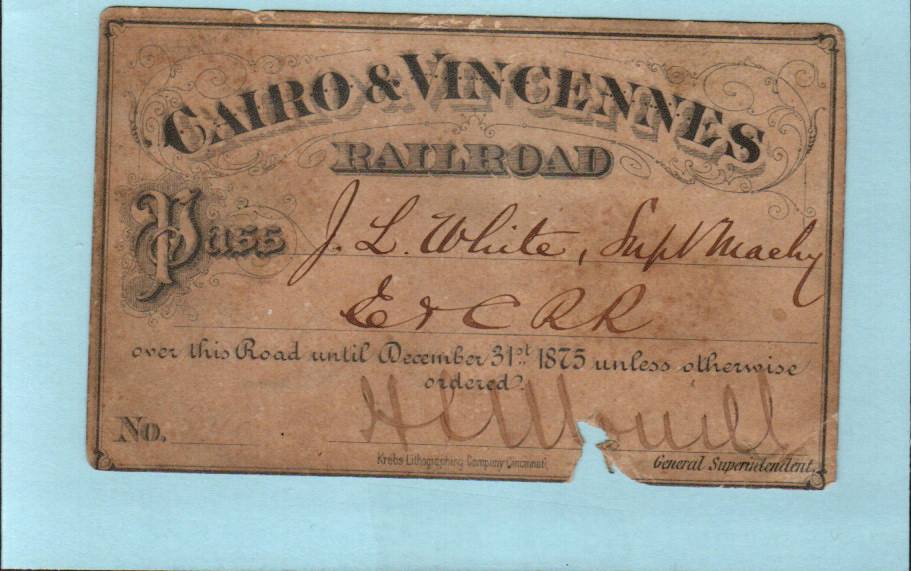 CAIRO & VINCENNES
RAILROAD
Pass J. L. White, Supt Machy
E & C RR
over this Road until December 31st 1875 unless otherwise
ordered.
No.
Krebs Lithographing Company Cincinnati
General Superintendent.